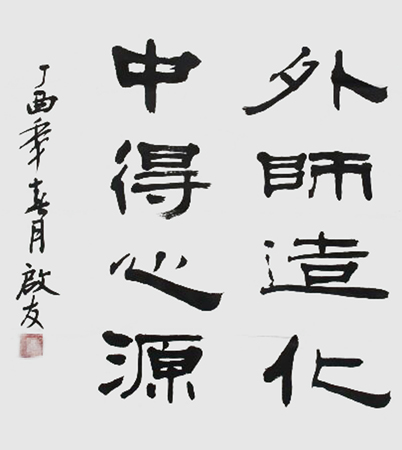 外师造化
中得心源
丁酉年春月啟友